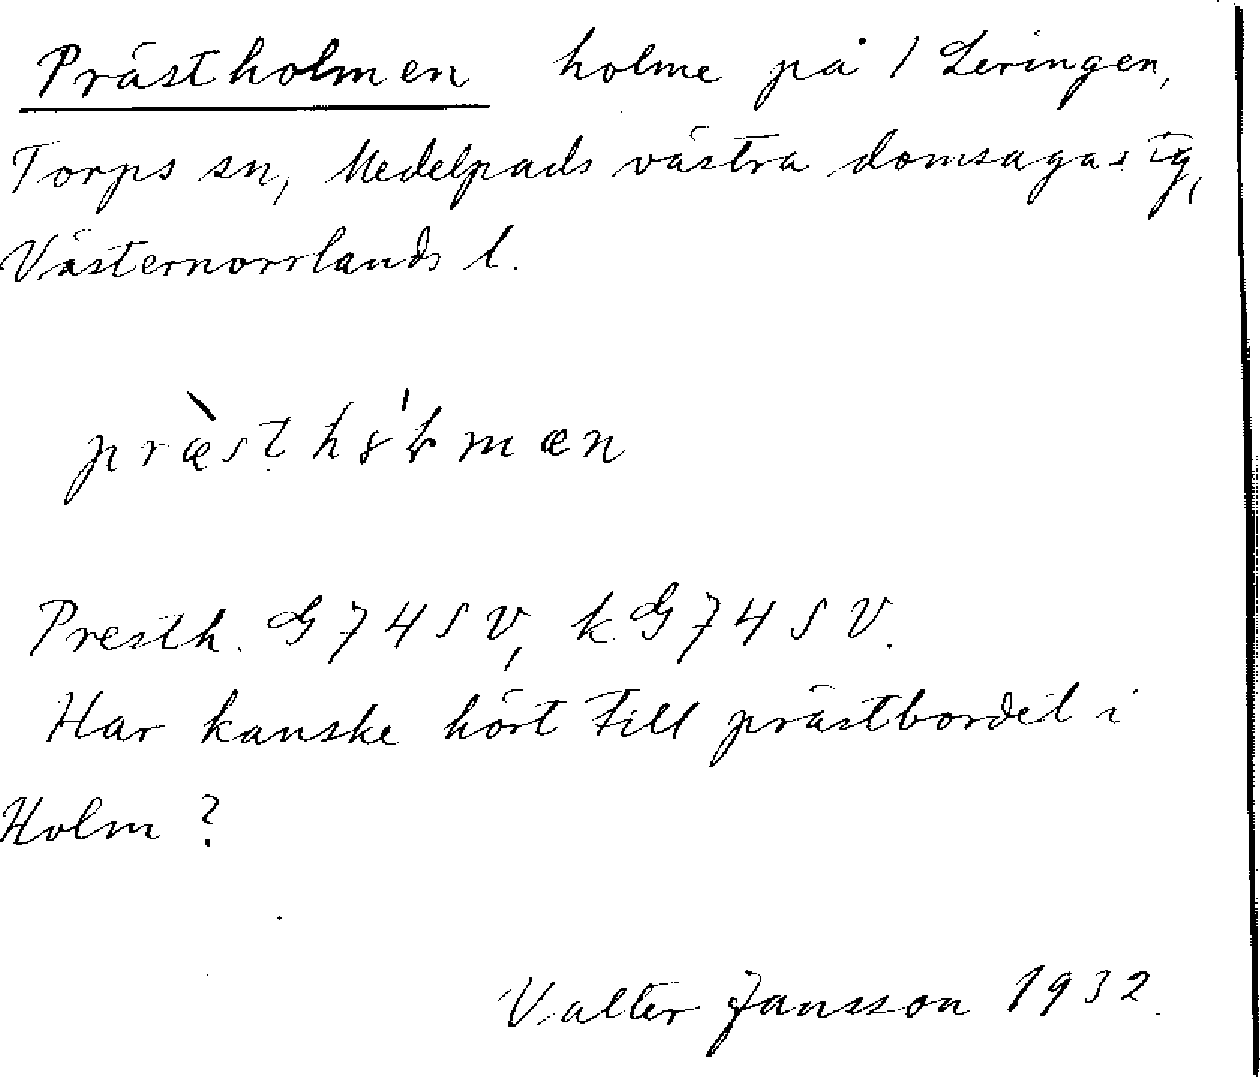 Prästholmen holme på / Leringen,
Torps sn, Medelpads västra domsagas tg,
Västernorrlands l.
Presth. G 74 SV, k G 74 SV.
Har kanske hört till prästbordet i
Holm?
Valter Jansson 1932.